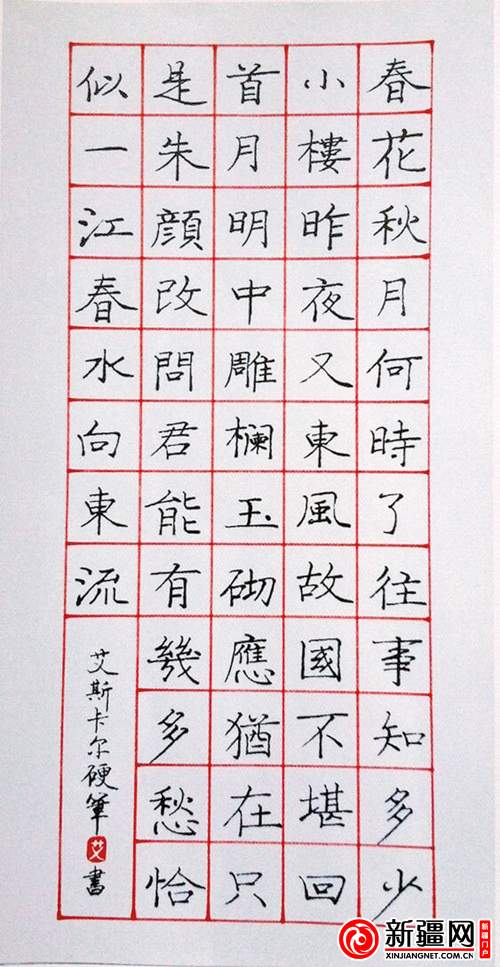 春花秋月何時了往事知多少
小樓昨夜又東風故國不堪回
首月明中雕欄玉砌應猶在只
是朱顔改問君能有幾多愁恰
似一江春水向東流
艾斯卡尔硬筆書
艾
新疆网
XINJIANGNET.COM.CN
新疆门户